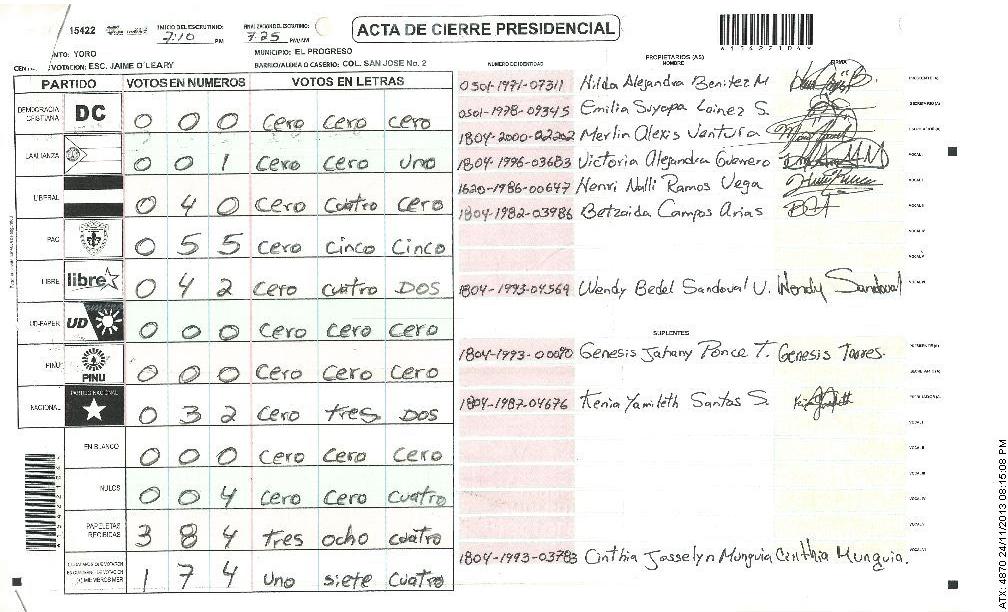 15422
INICIO DEL ESCRUTINIO:
7:10 PM
FINALIZACION DEL ESCRUTINIO:
7:25 PM/AM
ACTA DE CIERRE PRESIDENCIAL
YORO
MUNICIPIO: EL PROGRESO
VOTACION: ESC. JAIME O'LEARY
BARRIO/ALDEA O CASERIO: COL. SAN JOSE No. 2
PARTIDO VOTOS EN NUMEROS VOTOS EN LETRAS
DEMOCRACIA CRISTIANA DC 0 0 0 cero cero cero
LA ALIANZA 0 0 1 cero cero uno
LIBERAL 0 4 0 cero cuatro cero
PAC 0 5 5 cero cinco cinco
LIBRE libre 0 4 2 cero cuatro DOS
UD-FAPER UD 0 0 0 cero cero cero
PINU PINU 0 0 0 cero cero cero
NACIONAL PARTIDO NACIONAL 0 3 2 cero tres DOS
EN BLANCO 0 0 0 cero cero cero
NULOS 0 0 4 cero cero cuatro
PAPELETAS RECIBIDAS 3 8 4 tres ocho cuatro
1 7 4 uno siete cuatro
NUMERO DE IDENTIDAD
PROPIETARIOS (AS)
NOMBRE
FIRMA
0501-1971-07311 Hilda Alejandra Benitez M
0501-1978-09345 Emilia Suyapa Lainez S.
1804-2000-02202 Merlin Alexis Ventura
1804-1996-03683 Victoria Alejandra Guerrero
1620-1986-00647 Henri Nalli Ramos Vega
1804-1982-03986 Betzaida Campos Arias
1804-1993-04569 Wendy Bedel Sandoval U. Wendy Sandoval
SUPLENTES
1804-1993-00090 Genesis Jahany Ponce T. Genesis Torres.
1804-1987-04676 Kenia Yamileth Santos S.
1804-1993-03783 Cinthia Josselyn Munguia Cinthia Munguia.
ATX: 4870 24/11/2013 08:15:08 PM